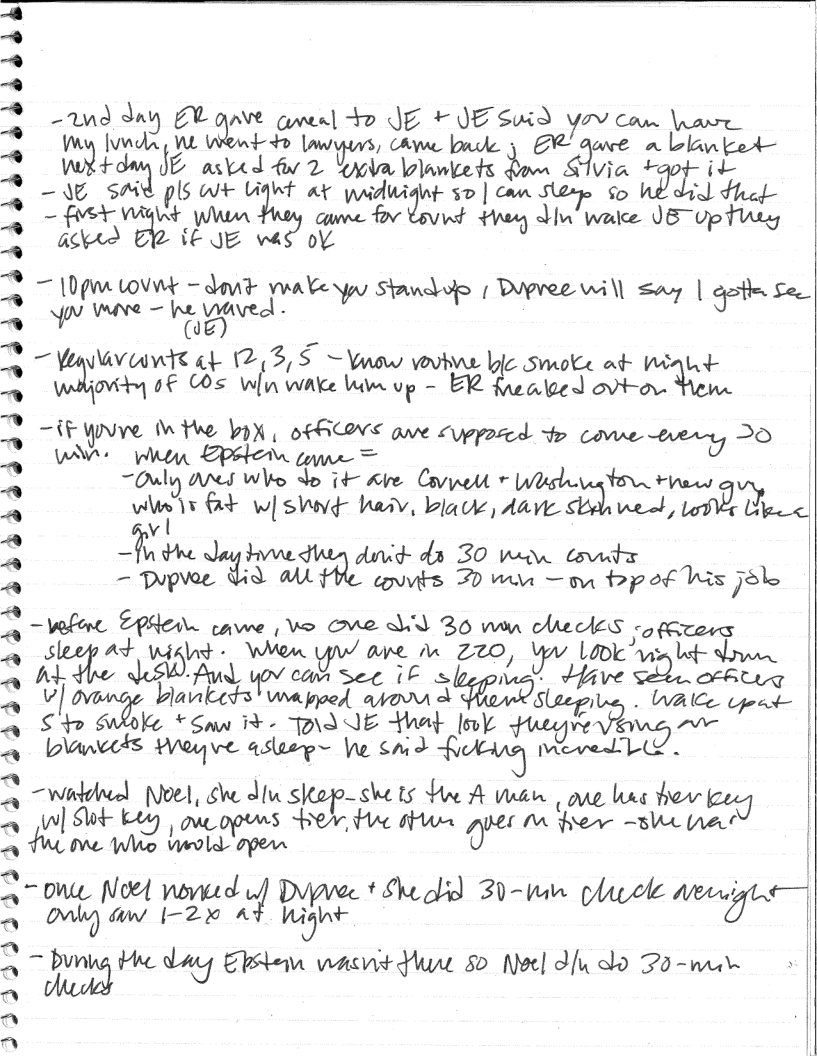 - 2nd day ER gave cereal to JE + JE said you can have
my lunch, he went to lawyers, came back; ER gave a blanket
next day JE asked for 2 extra blankets from Silvia + got it
- JE said pls cut light at midnight so I can sleep so he did that
- first night when they came for count they d/n wake JE up they
asked ER if JE was ok
- 10pm count - don't make you stand up, Dupree will say I gotta see
you move - he waved.
(JE)
- Regular counts at 12, 3, 5 - know routine b/c smoke at night
majority of COs w/n wake him up - ER freaked out on them
- if you're in the box, officers are supposed to come every 30
min. when Epstein came =
- Only ones who do it are Cornell + Washington + new guy
who is fat w/ short hair, black, dark skinned, looks like a
girl
- In the daytime they don't do 30 min counts
- Dupree did all the counts 30 min - on top of his job
- before Epstein came, no one did 30 min checks; officers
sleep at night. When you are in 220, you look right down
at the desk. And you can see if sleeping. Have seen officers
w/ orange blankets wrapped around them sleeping. Wake up at
5 to smoke + saw it. Told JE that look they're using our
blankets they're asleep - he said fucking incredible.
- watched Noel, she d/n sleep - she is the A man, one has tier key
w/ slot key, one opens tier, the other goes on tier - she was
the one who would open
- once Noel worked w/ Dupree + she did 30-min check overnight
only saw 1-2x at night
- During the day Epstein wasn't there so Noel d/n do 30-min
checks